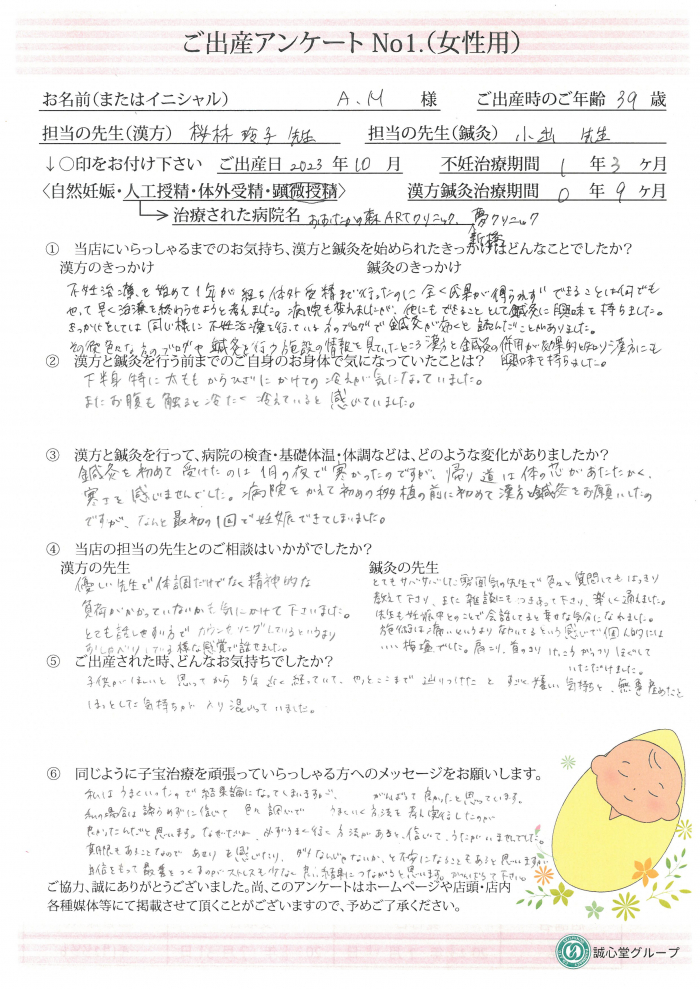 ご出産アンケート No1.(女性用)
お名前(またはイニシャル) A.M 様 ご出産時のご年齢 39 歳
担当の先生(漢方) 桜林 玲子 先生 担当の先生(鍼灸) 小出 先生
↓○印をお付け下さい ご出産日 2023 年 10 月 不妊治療期間 1 年 3 ヶ月
〈自然妊娠・人工授精・体外受精・顕微授精〉 漢方鍼灸治療期間 0 年 9 ヶ月
治療された病院名 おおたかの森ARTクリニック、夢クリニック
新橋
① 当店にいらっしゃるまでのお気持ち、漢方と鍼灸を始められたきっかけはどんなことでしたか?
漢方のきっかけ 鍼灸のきっかけ
不妊治療を始めて1年が経ち体外受精まで行ったのに全く結果が得られず できることは何でも
やって早く治療を終わらせようと考えました。病院も変えましたが、他にもできることとして鍼灸に興味を持ちました。
きっかけとしては同じ様に不妊治療を行っている方のブログで鍼灸が効くと読んだことがありました。
その後色々な方のブログや鍼灸を行う施設の情報を見ていたところ漢方と鍼灸の併用が効果的と知り漢方にも
興味を持ちました。
② 漢方と鍼灸を行う前までのご自身のお身体で気になっていたことは?
下半身 特に太ももからひざにかけての冷えが気になっていました。
またお腹も触ると冷たく冷えていると感じていました。
③ 漢方と鍼灸を行って、病院の検査・基礎体温・体調などは、どのような変化がありましたか?
鍼灸を初めて受けたのは1月の夜で寒かったのですが、帰り道は体の芯があたたかく、
寒さを感じませんでした。病院をかえて初めの移植の前に初めて漢方と鍼灸をお願いしたの
ですが、なんと最初の1回で妊娠できてしまいました。
④ 当店の担当の先生とのご相談はいかがでしたか?
漢方の先生 鍼灸の先生
優しい先生で体調だけでなく精神的な
負荷がかかっていないかも気にかけて下さいました。
とても話しやすい方でカウンセリングしているというより
おしゃべりしている様な感覚で話せました。
とてもサバサバした雰囲気の先生で色々と質問してもはっきり
教えて下さり、また雑談にもつきあって下さり、楽しく通えました。
先生も妊娠中とのことで会話してると幸せな気分になれました。
施術は痛いというより なおってるという感じで個人的には
いい塩梅でした。肩こり、首のこり けっこうがっつりほぐして
いただけました。
⑤ ご出産された時、どんなお気持ちでしたか?
子供がほしいと思ってから5年近く経っていて、やっとここまで辿りつけたとすごく嬉しい気持ちと、無事産めたこと
ほっとした気持ちが入り混じっていました。
⑥ 同じように子宝治療を頑張っていらっしゃる方へのメッセージをお願いします。
私はうまくいったので結果論になってしまいますが、がんばって良かったと思っています。
私の場合は諦めずに信じて 色々調べて うまくいく方法を考え実行したのが
良かったんだと思います。必ずうまく行く方法があると、信じて、うたがいませんでした。
期限もあることなので あせりを感じたり、ダメなんじゃないか、と不安になることもあると思いますが
自信をもって最善をつくすのがストレスも少なく良い結果につながると思います。がんばって下さい。
ご協力、誠にありがとうございました。尚、このアンケートはホームページや店頭・店内
各種媒体等にて掲載させて頂くことがございますので、予めご了承ください。
誠心堂グループ